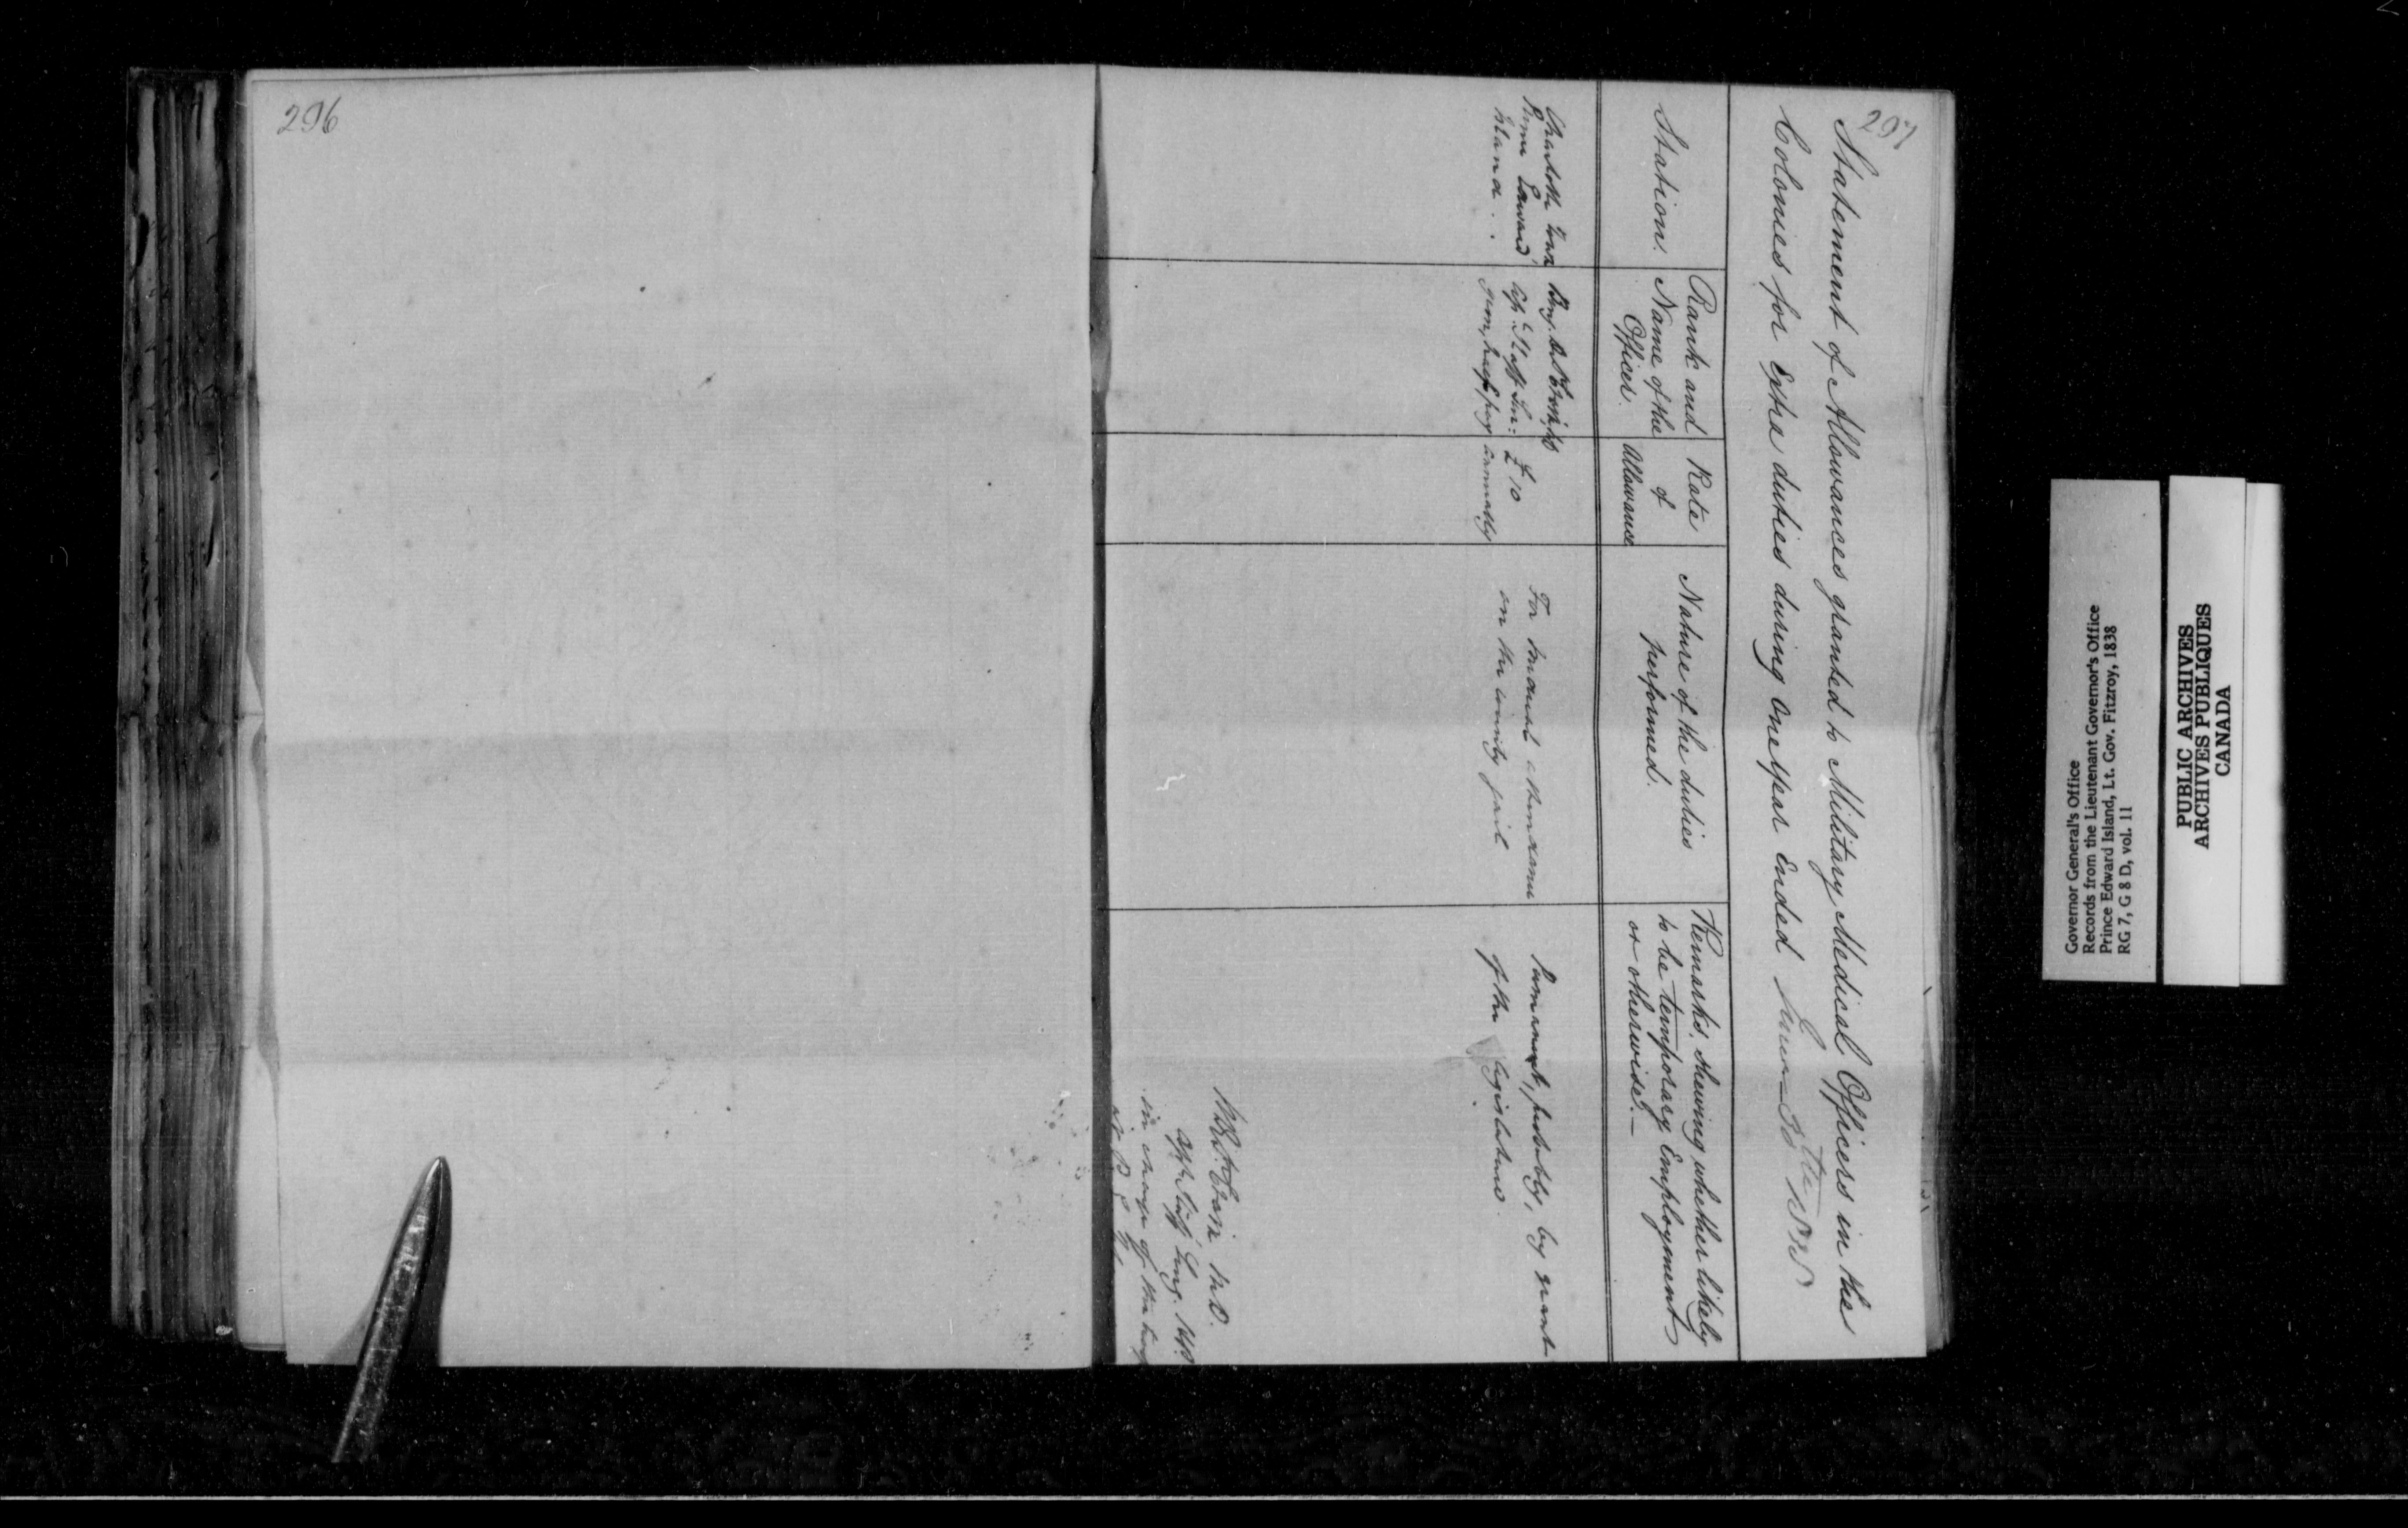 296
297
Statement of Allowances granted to Military Medical Officers in the
Colonies for Extra duties during One Year Ended June 30th 1838
Station.
Rank and
Name of the
Officer.
Rate
of
Allowance
Nature of the duties
performed.
Remarks, shewing whether likely
to be temporary Employment
or otherwise. —
Charlotte Town
Prince Edward
Island . .
Staff Sur:
geon, half pay
£10
annually
For medical attendance
on the County jail
Permanent, probably, by grant
of the Legislature.
M.D.
Staff Surg.
in charge of the
Governor General's Office
Records from the Lieutenant Governor's Office
Prince Edward Island, Lt. Gov. Fitzroy, 1838
RG 7, G 8 D, vol. 11
PUBLIC ARCHIVES
ARCHIVES PUBLIQUES
CANADA